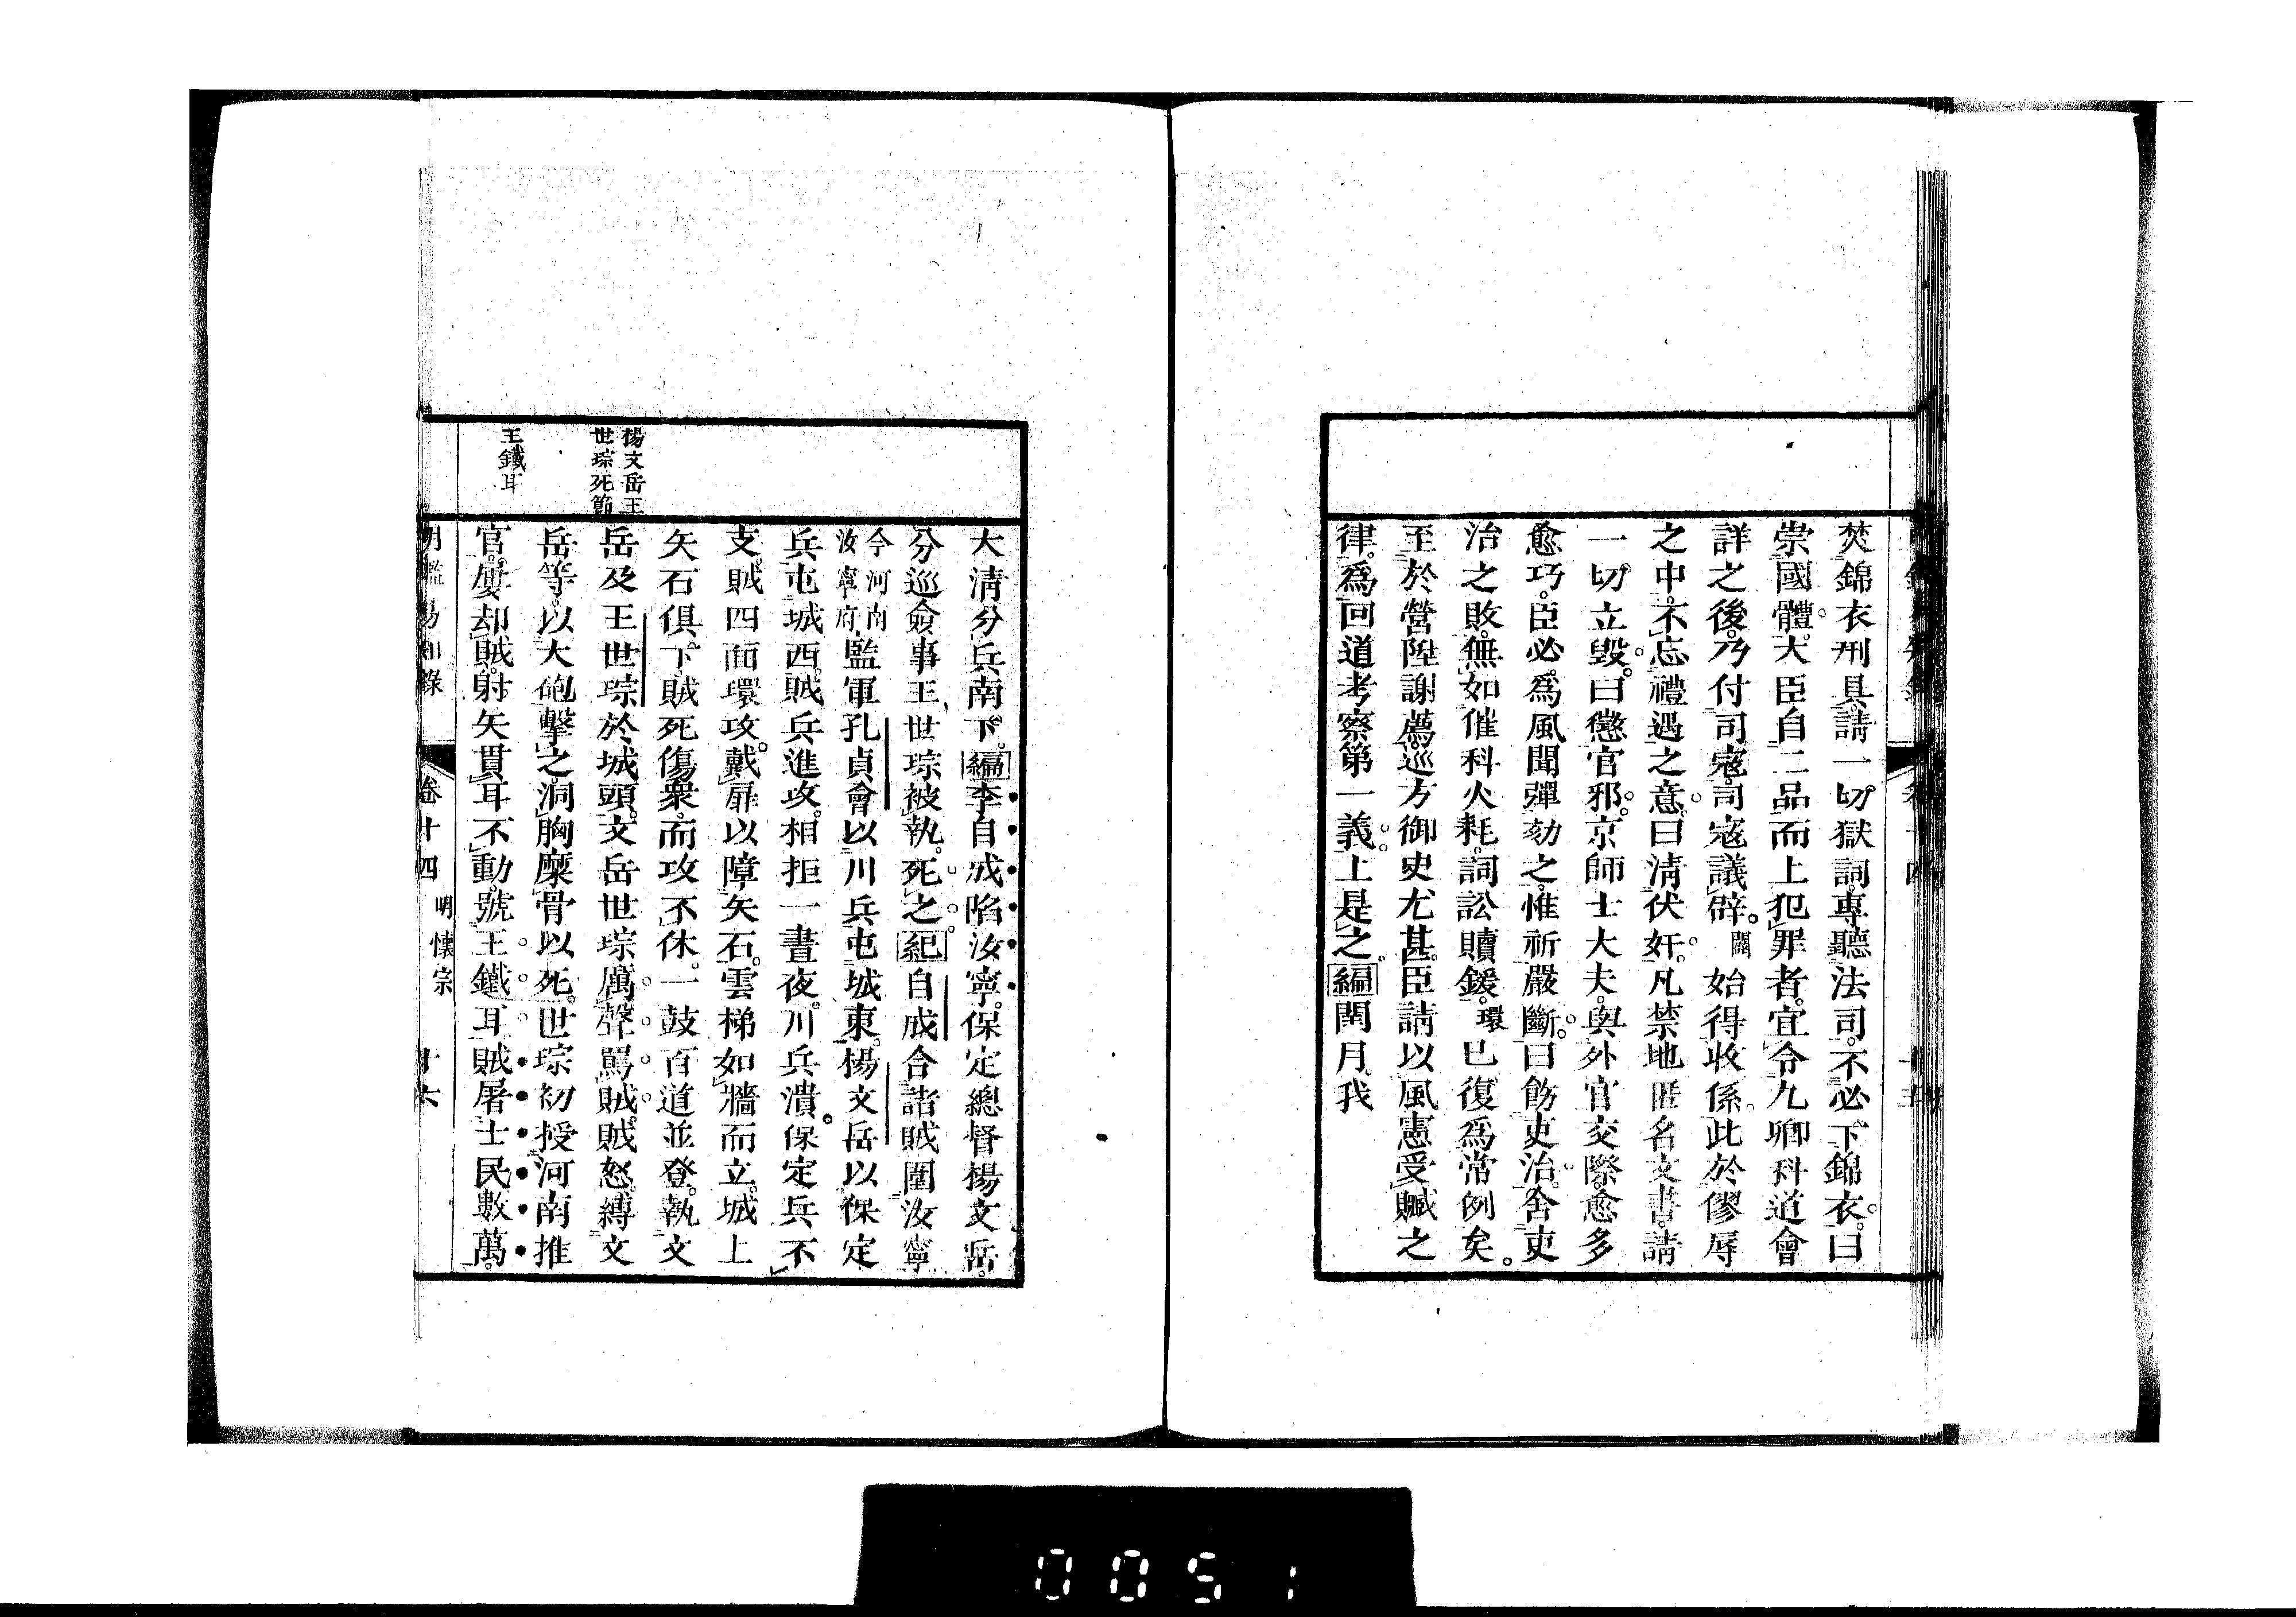 焚錦衣刑具。請一切獄詞。專聽法司。不必下錦衣。曰
崇國體。大臣自二品而上犯罪者。宜令九卿科道會
詳之後。乃付司寇。司寇議辟。闢始得收係。此於僇辱
之中。不忘禮遇之意。曰清伏奸。凡禁地匿名文書。請
一切立毀。曰懲官邪。京師士大夫。與外官交際。愈多
愈巧。臣必爲風聞彈劾之。惟祈嚴斷。曰飭吏治。舍吏
治之敗。無如催科火耗。詞訟贖鍰。環已復爲常例矣。
至於營陞謝薦。巡方御史尤甚。臣請以風憲受贓之
律。爲回道考察第一義。上是之。編閏月。我
大清分兵南下。編李自成陷汝寧。保定總督楊文岳。
分巡僉事王世琮被執。死之。紀自成合諸賊圍汝寧
今河南汝寧府。監軍孔貞會以川兵屯城東。楊文岳以保定
兵屯城西。賊兵進攻。相拒一晝夜。川兵潰。保定兵不
支。賊四面環攻。戴扉以障矢石。雲梯如牆而立。城上
矢石俱下。賊死傷衆。而攻不休。一鼓百道並登。執文
岳及王世琮於城頭。文岳世琮厲聲罵賊。賊怒。縛文
岳等。以大砲擊之。洞胸糜骨以死。世琮初授河南推
官。屢却賊。射矢貫耳不動。號王鐵耳。賊屠士民數萬。
楊文岳王
世琮死節
王鐵耳
明鑑易知錄 卷十四 明懷宗 十六
0051